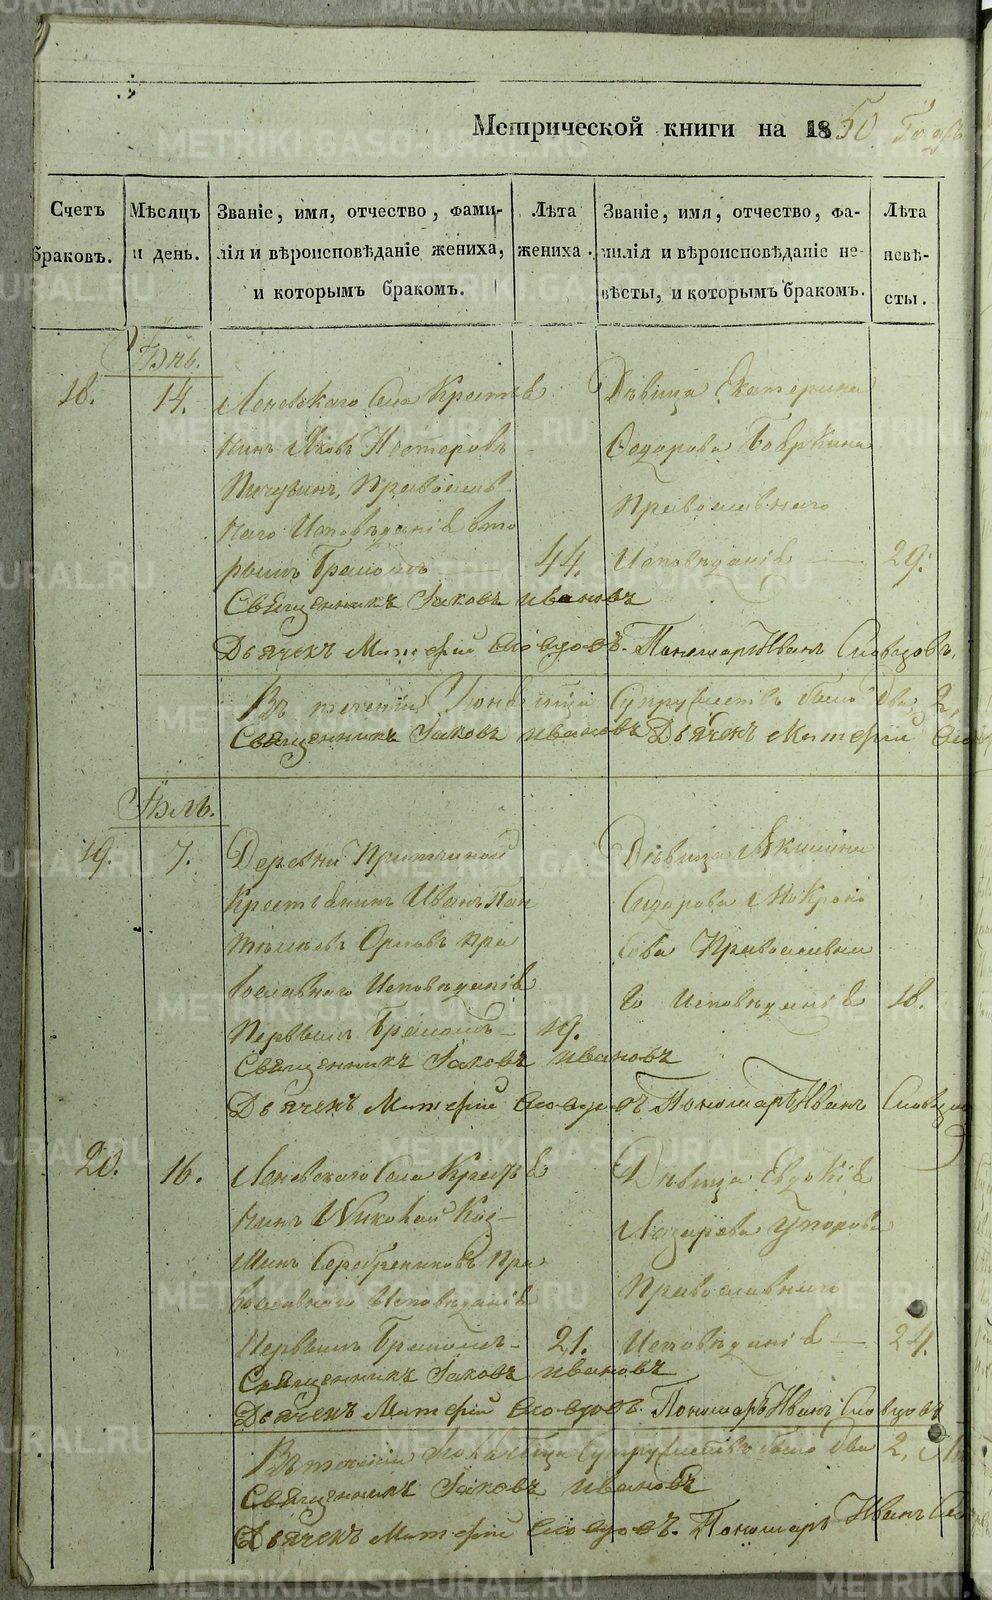 Метрической книги на 1850 Годъ
Счетъ браковъ.
Мѣсяцъ и день.
Званіе, имя, отчество, фами-
лія и вѣроисповѣданіе жениха,
и которымъ бракомъ.
Лѣта
жениха.
Званіе, имя, отчество, фа-
милія и вѣроисповѣданіе не-
вѣсты, и которымъ бракомъ.
Лѣта
невѣ-
сты.
Іюнь.
18. 14.
Леневскаго Села Крестья
нинъ Яковъ Нестеровъ
Православ
наго Исповѣданія вто
рымъ Бракомъ 44.
Дѣвица Екатерина
Сидорова
Православнаго
Исповѣданія 29.
Священникъ Іаковъ Ивановъ
Дьячекъ Матфей Словцовъ. Пономарь Иванъ Словцовъ.
Въ теченіи Іюня мца Супружествъ было два 2,
Священникъ Іаковъ Ивановъ Дьячекъ Матфей
Іюль.
19. 7.
Деревни
Крестьянинъ Иванъ Пан
телеевъ Орловъ Пра
вославнаго Исповѣданія
Первымъ Бракомъ 19.
Дѣвица Акилина
Сидорова Мокроно
сова Православна
го Исповѣданія 18.
Священникъ Іаковъ Ивановъ
Дьячекъ Матфей Словцовъ Пономарь Иванъ Словцовъ
20. 16.
Леневскаго Села Крестья
нинъ Николай Коз-
минъ Серебрениковъ Пра
вославнаго Исповѣданія
Первымъ Бракомъ 21.
Дѣвица Евдокія
Лазарева Упорова
Православнаго
Исповѣданія 24.
Священникъ Іаковъ Ивановъ
Дьячекъ Матфей Словцовъ. Пономарь Иванъ Словцовъ
Въ теченіи Іюля мца Супружествъ было два 2,
Священникъ Іаковъ Ивановъ
Дьячекъ Матфей Словцовъ. Пономарь Иванъ
METRIKI.GASO-URAL.RU